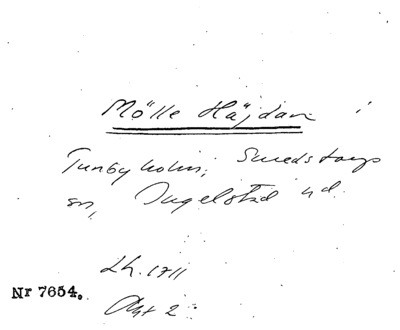 Mölle Häjdan
Tunbyholm, Smedstorps
sn, Ingelstad hd.
Lh. 1711
Nr 7654.
Akt 2